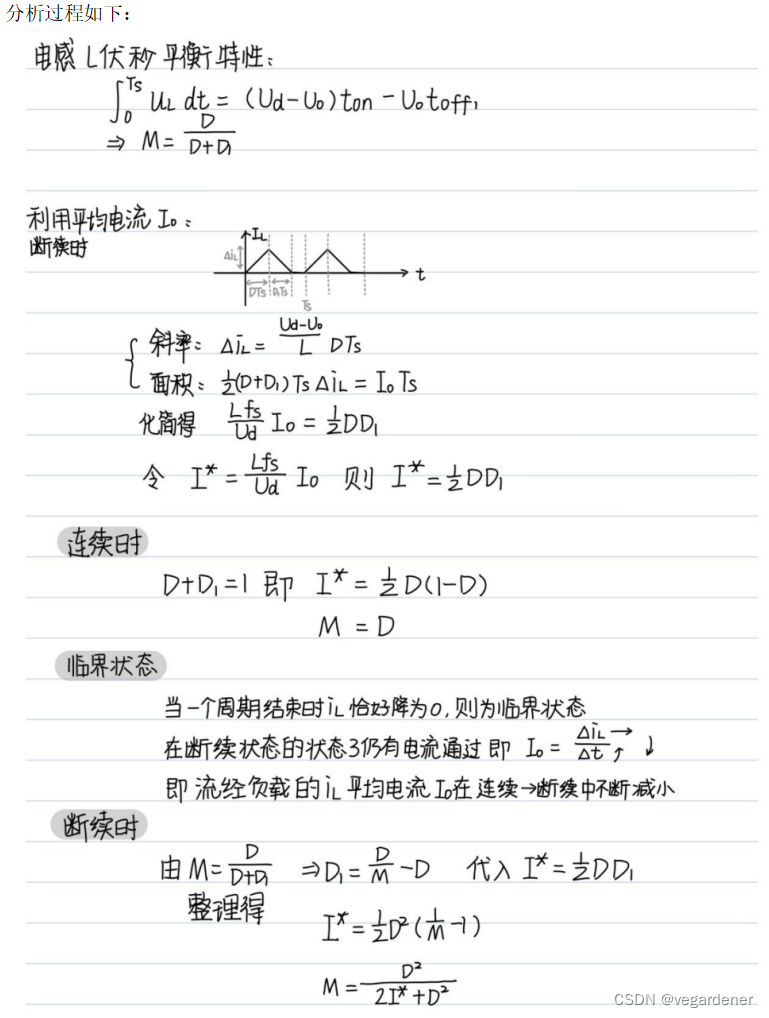 分析过程如下：
电感 L 伏秒平衡特性：
∫₀^Ts U_L dt = (Ud-Uo)ton - Uo toff₁
⇒ M = D/(D+D₁)
利用平均电流 Io：
断续时
I_L
Δi_L
t
DTs D₁Ts
Ts
斜率：Δi_L = (Ud-Uo)/L DTs
面积：½(D+D₁)TsΔi_L = IoTs
化简得 Lfs/Ud Io = ½DD₁
令 I* = Lfs/Ud Io 则 I* = ½DD₁
连续时
D+D₁=1 即 I* = ½D(1-D)
M = D
临界状态
当一个周期结束时i_L恰好降为0,则为临界状态
在断续状态的状态3仍有电流通过 即 Io = Δi_L/Δt → ↑ ↓
即 流经负载的i_L平均电流Io在连续→断续中不断减小
断续时
由 M = D/(D+D₁) ⇒ D₁ = D/M - D 代入 I* = ½DD₁
整理得
I* = ½D²(1/M - 1)
M = D²/(2I*+D²)
CSDN @vegardener